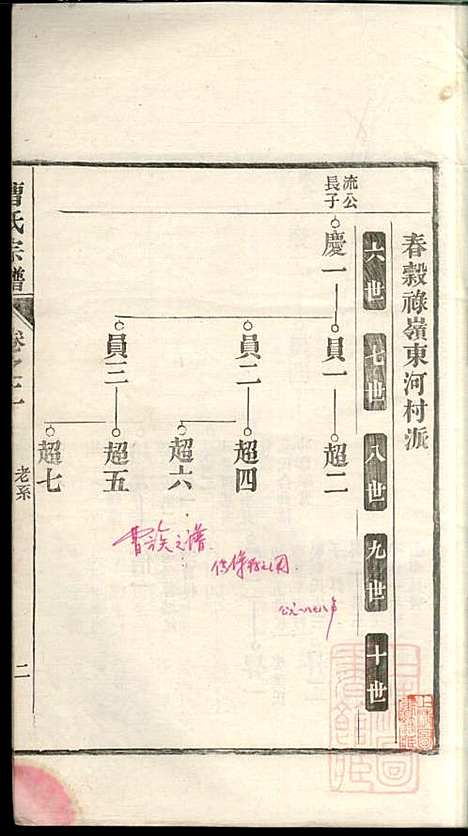 春穀祿嶺東河村派
六世 七世 八世 九世 十世
流公
長子
慶一
員一
超二
員二
超四
超六
員三
超五
超七
曹族之譜
公元一八七八年
曹氏宗譜
卷之一
老系
二